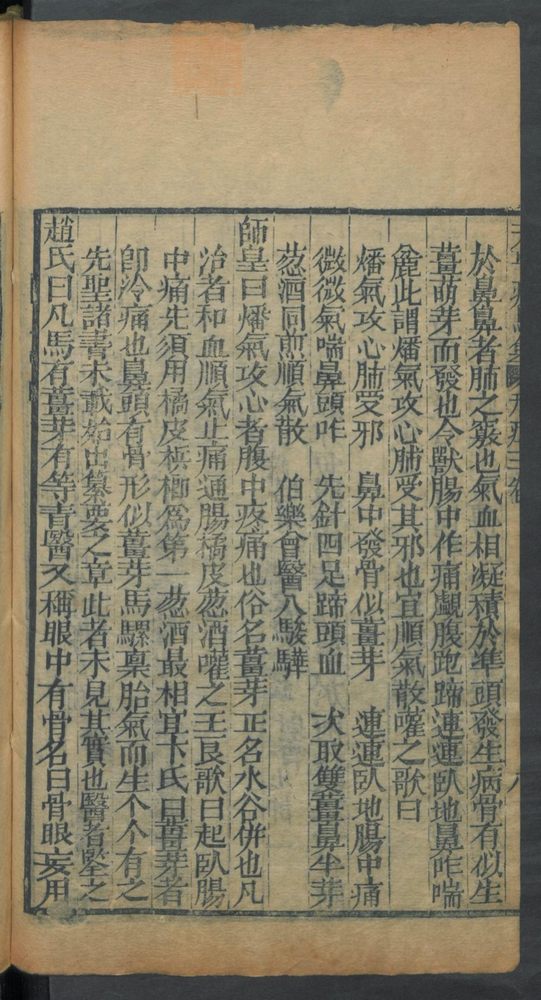 於鼻鼻者肺之竅也氣血相凝積於準頭發生病骨有似生
薑萌芽而發也令獸腸中作痛覷腹跑蹄連連臥地鼻咋喘
麄此謂燔氣攻心肺受其邪也宜順氣散嚾之歌曰
燔氣攻心肺受邪　鼻中發骨似薑芽　連連臥地腸中痛
微微氣喘鼻頭咋　先針四足蹄頭血　次取雙薑鼻半芽
葱酒同煎順氣散　伯樂曾醫八駿驊
師皇曰燔氣攻心者腹中疼痛也俗名薑芽正名水谷併也凡
治者和血順氣止痛通腸橘皮葱酒嚾之王良歌曰起臥腸
中痛先須用橘皮檳榔爲第一葱酒最相宜卞氏曰薑芽者
卽冷痛也鼻頭有骨形似薑芽馬騾禀胎氣而生个个有之
先聖諸書未載始出纂要之章此者未見其實也醫者堅之
趙氏曰凡馬有薑芽有等盲醫又稱眼中有骨名曰骨眼妄用